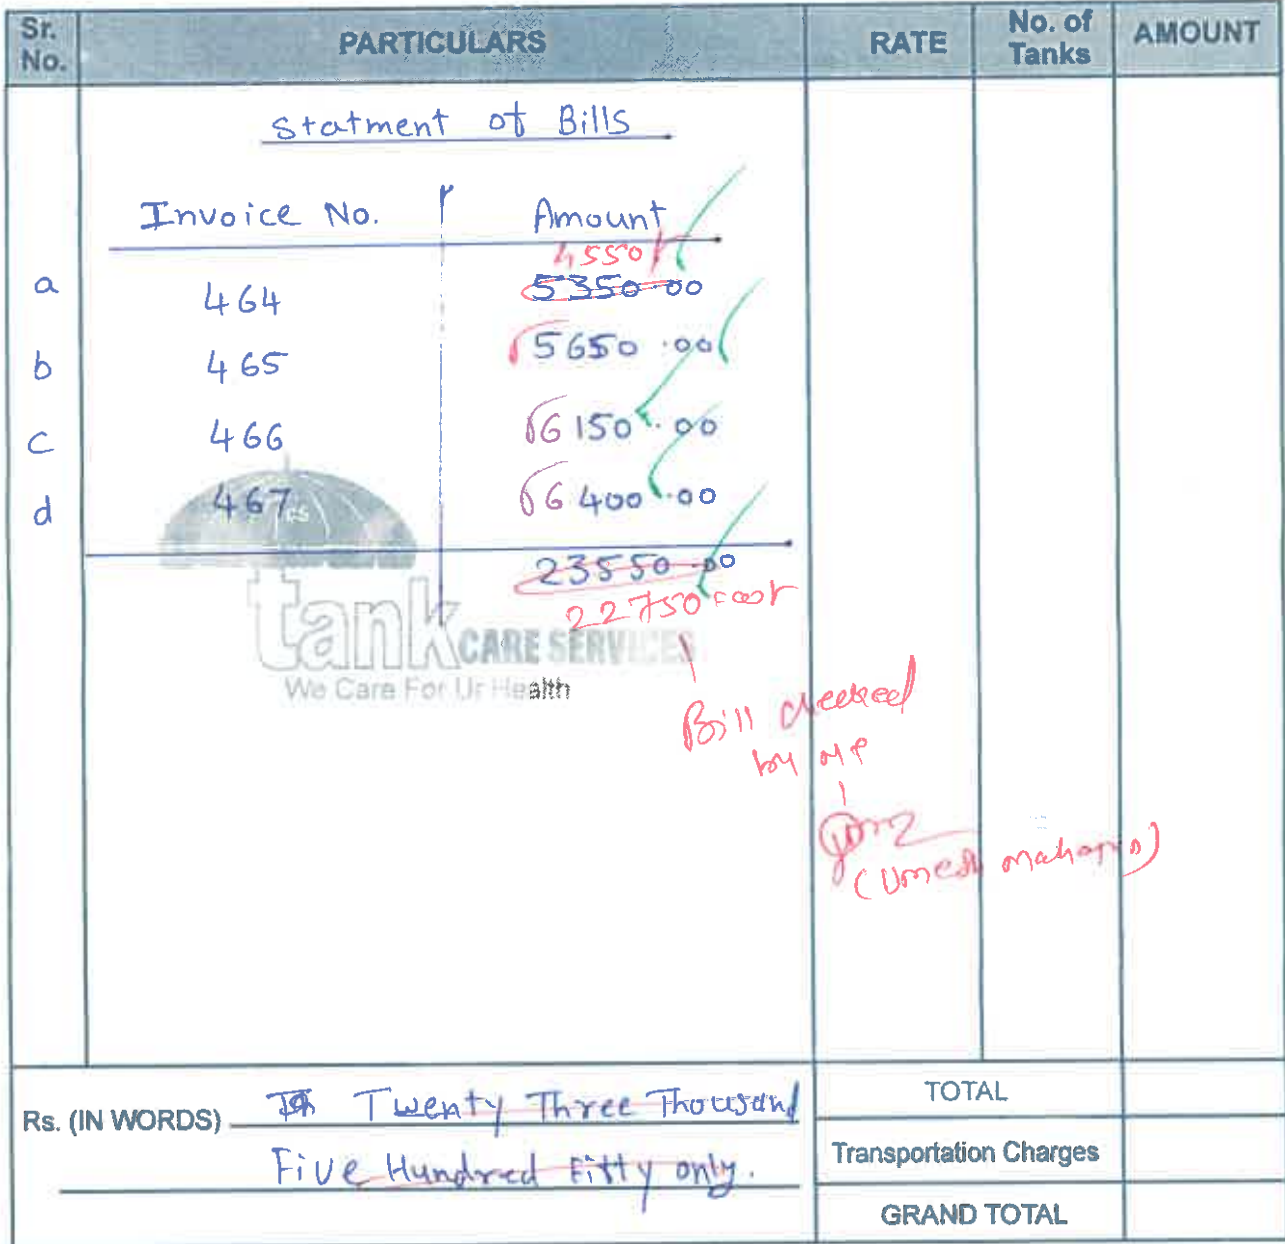 Sr. No. PARTICULARS RATE No. of Tanks AMOUNT
Statment of Bills
Invoice No. Amount
4550
a 464 5350.00
b 465 5650.00
c 466 6150.00
d 467 6400.00
23550.00
22750
tank CARE SERVICES
We Care For Ur Health
Bill checked
by me
(Umesh
Rs. (IN WORDS) Twenty Three Thousand
Five Hundred Fifty only.
TOTAL
Transportation Charges
GRAND TOTAL